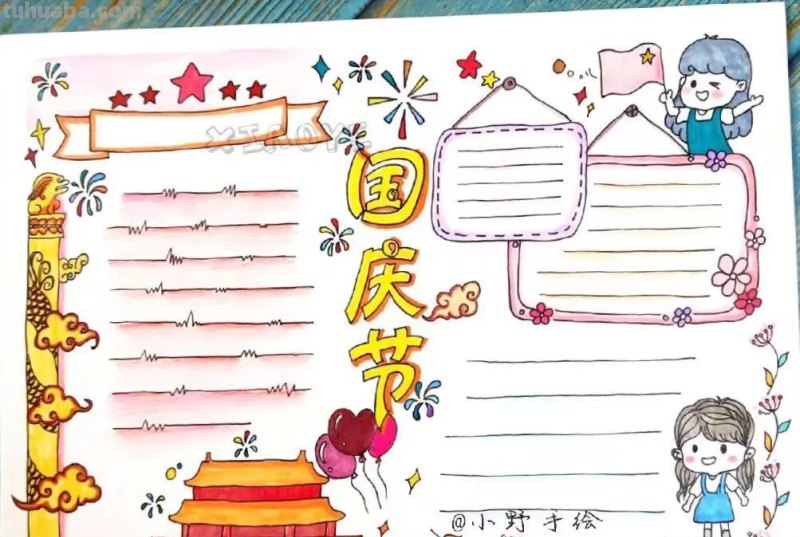 tuhuaba.com
XIAOYE
国庆节
@小野手绘